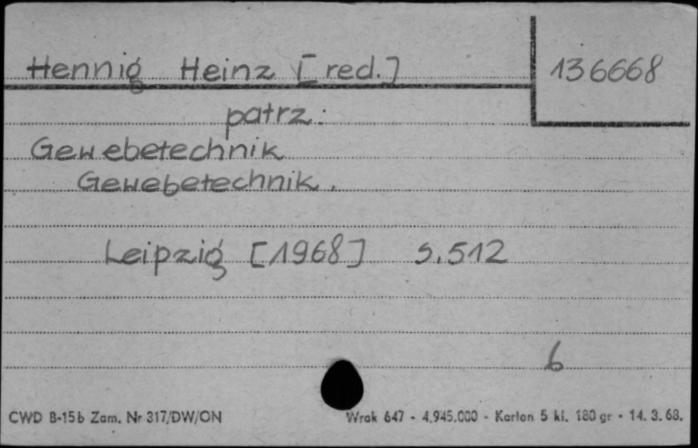 Hennig Heinz [red.] 136668
patrz:
Gewebetechnik
Gewebetechnik.
Leipzig [1968] S.512
6
CWD B-15b Zam. Nr 317/DW/ON Wrak 647 - 4.945.000 - Karton 5 kl. 180 gr - 14. 3. 68.